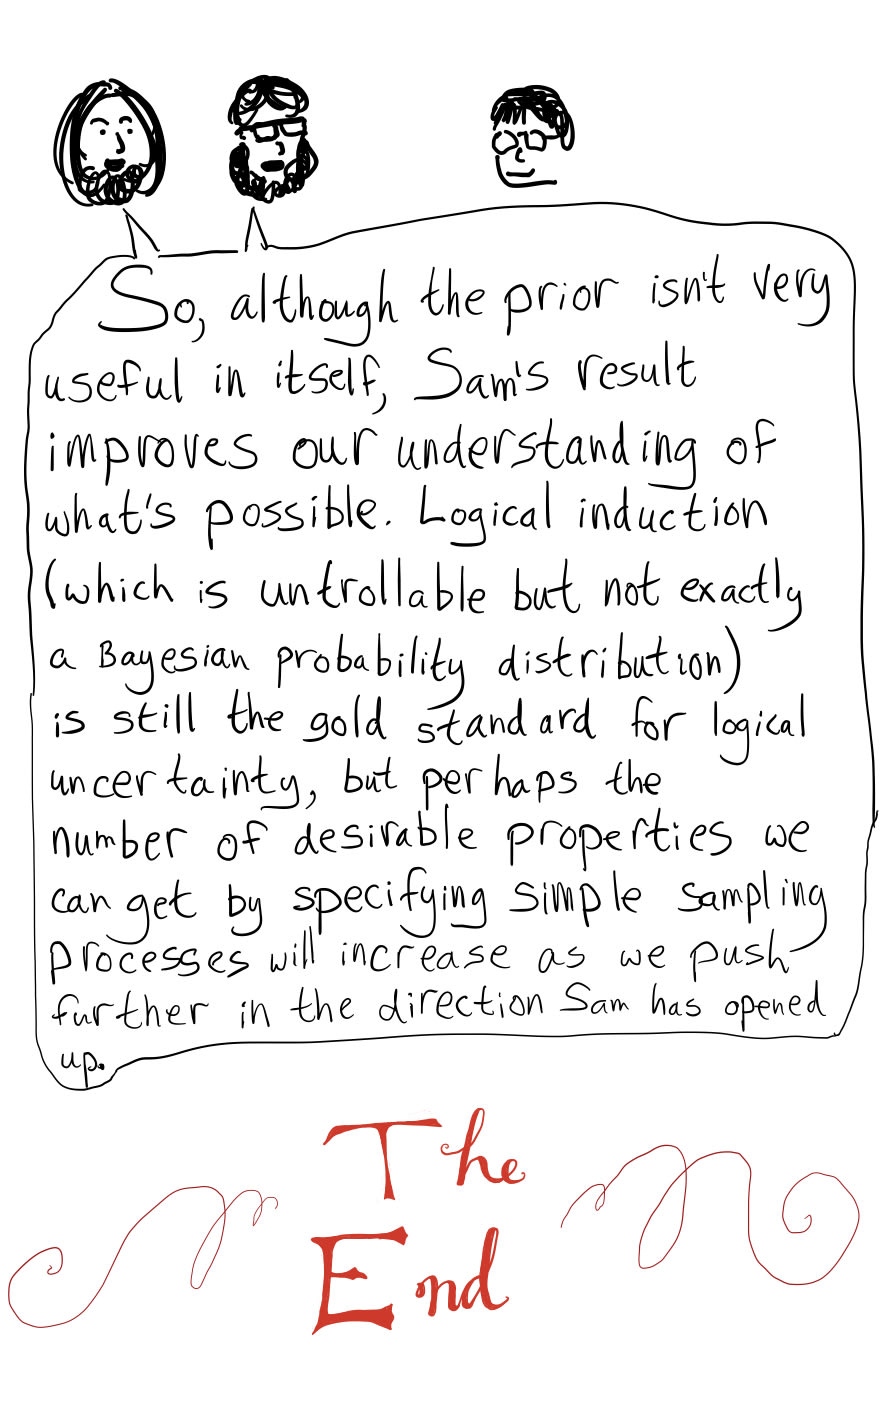 So, although the prior isn't very
useful in itself, Sam's result
improves our understanding of
what's possible. Logical induction
(which is untrollable but not exactly
a Bayesian probability distribution)
is still the gold standard for logical
uncertainty, but perhaps the
number of desirable properties we
can get by specifying simple sampling
processes will increase as we push
further in the direction Sam has opened
up.
The
End